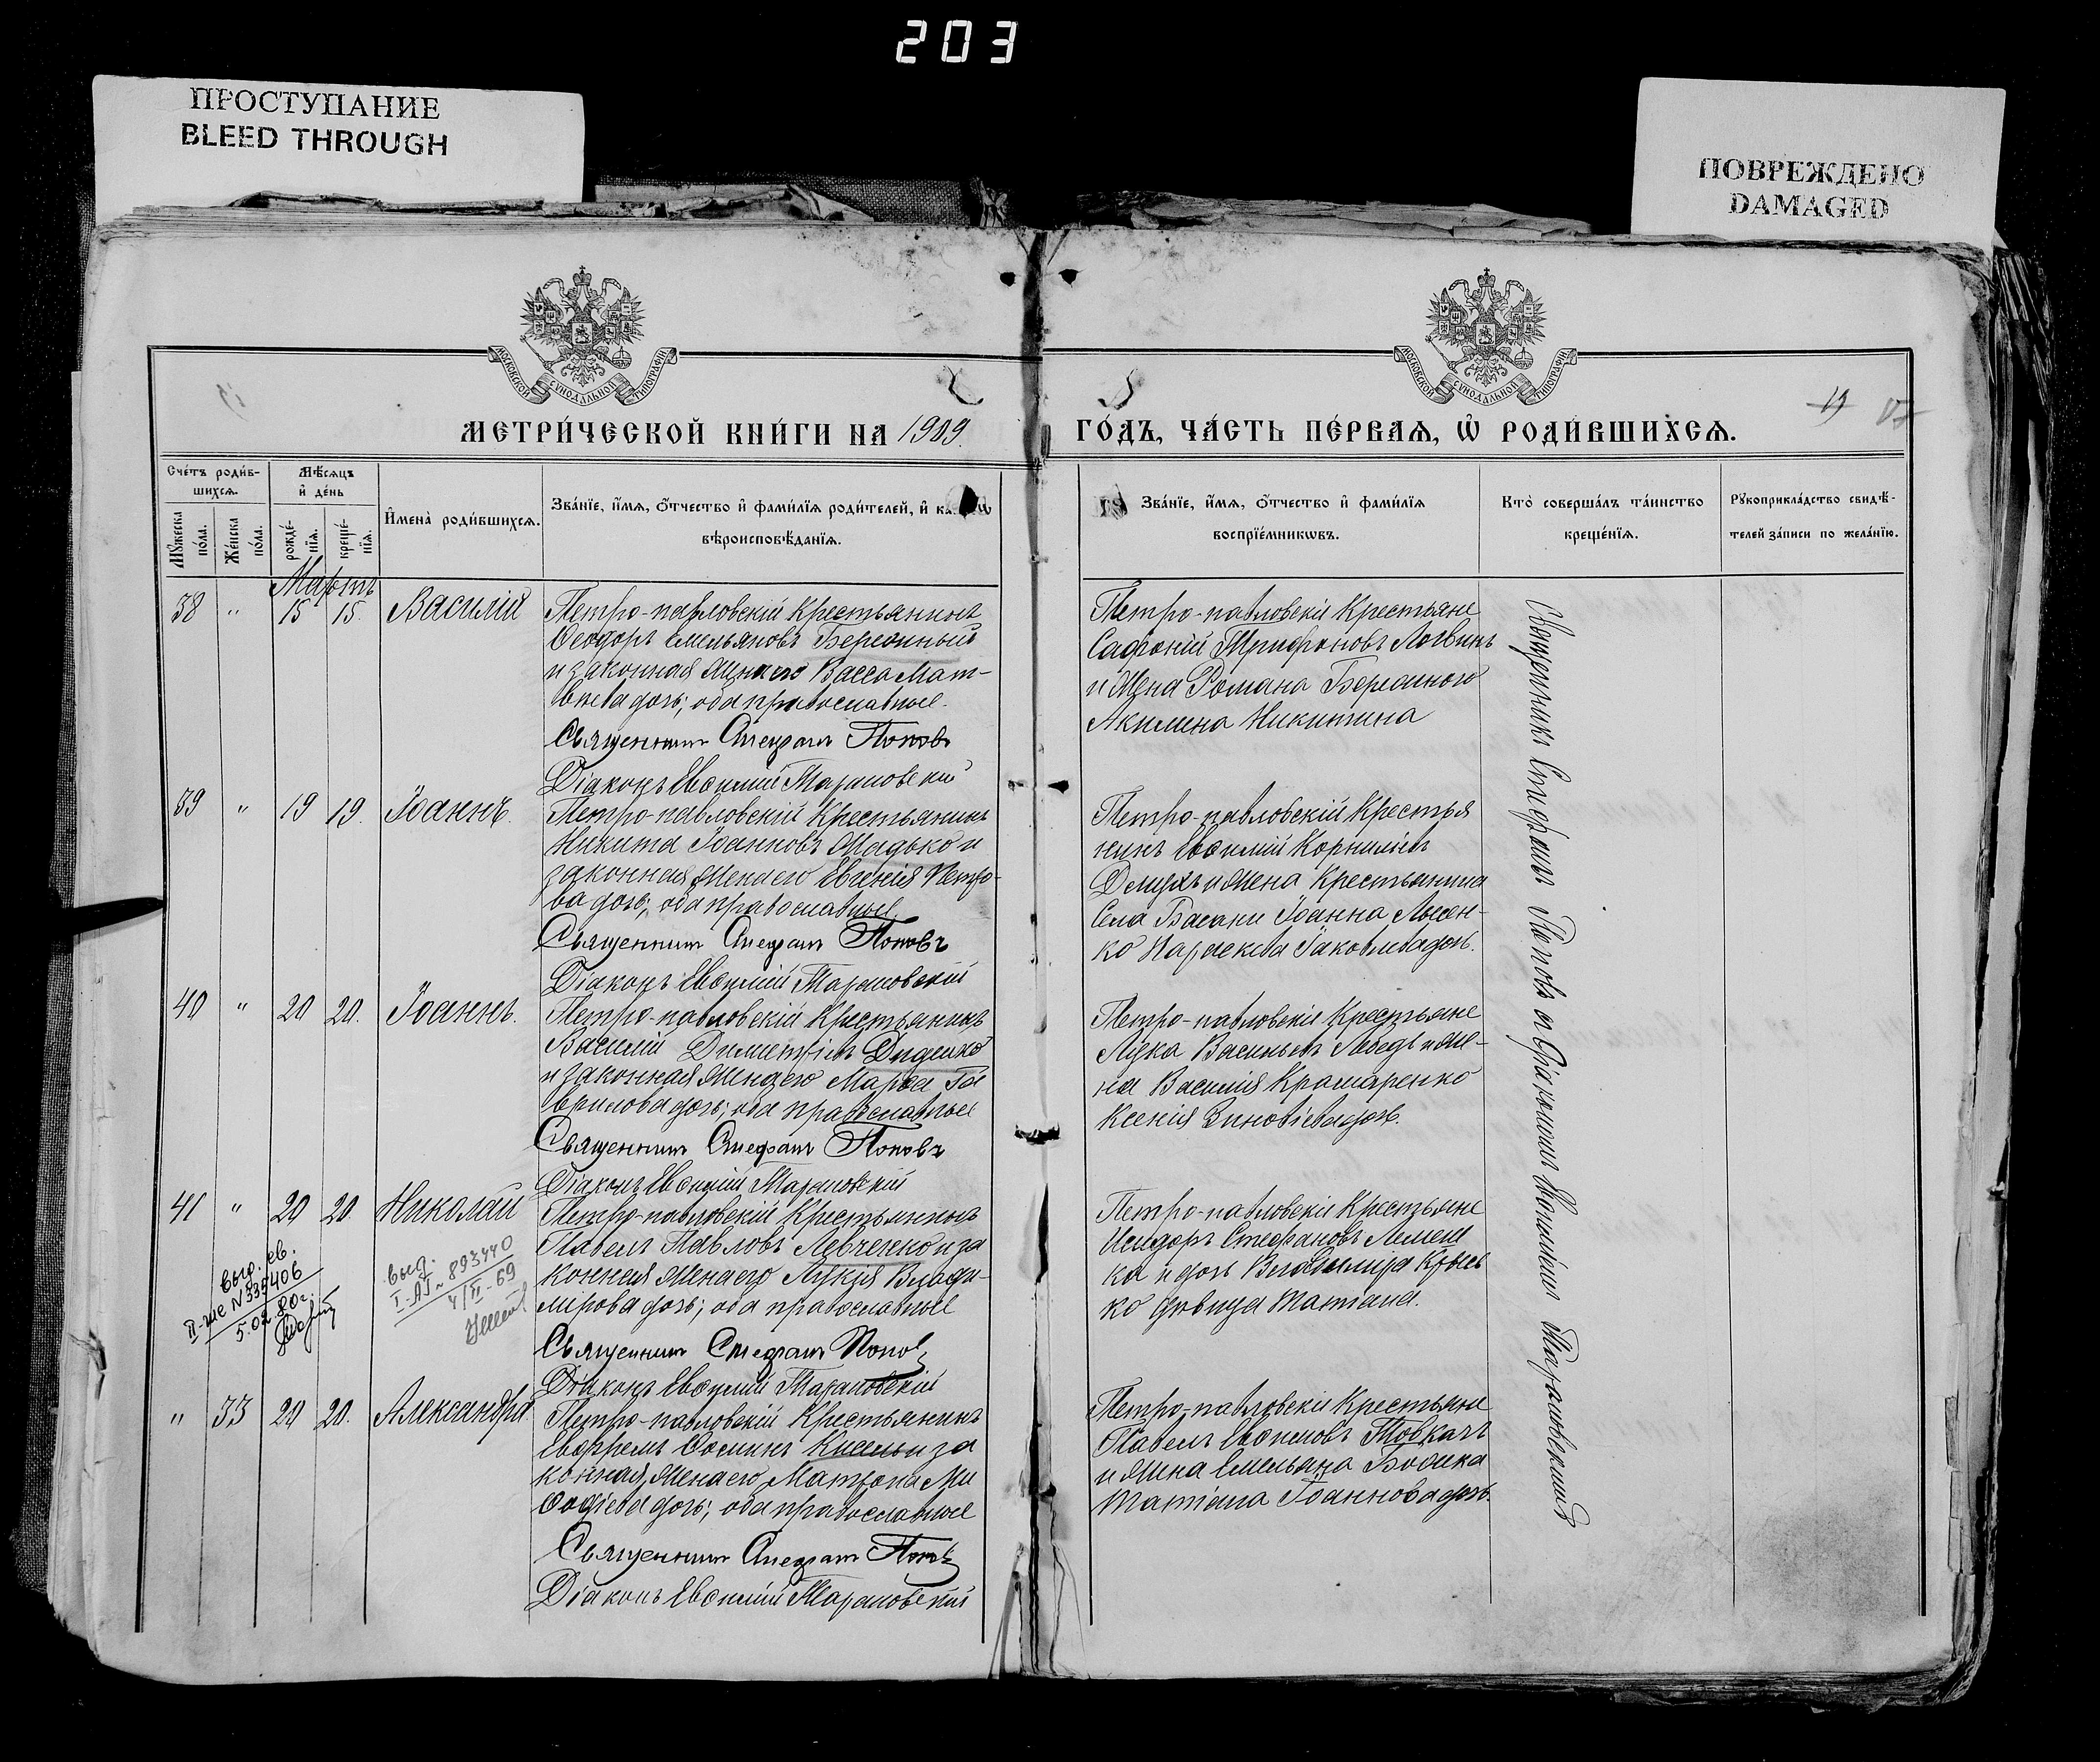 203
ПРОСТУПАНИЕ
BLEED THROUGH
ПОВРЕЖДЕНО
DAMAGED
МОСКОВСКОЙ СѴНОДАЛЬНОЙ ТИПОГРАФІИ
МОСКОВСКОЙ СѴНОДАЛЬНОЙ ТИПОГРАФІИ
19
МЕТРИ́ЧЕСКОЙ КНИ́ГИ НА 1909.
ГО́ДЪ, ЧА́СТЬ ПЕ́РВАѦ, Ѡ҆ РОДИ́ВШИХСѦ.
Сче́тъ роди́в-
шихсѧ.
Мꙋ́жеска
по́ла.
Же́нска
по́ла.
Мѣ́сѧцъ
и҆ де́нь
рожде́-
нїѧ.
креще́-
нїѧ.
И҆мена̀ роди́вшихсѧ.
Зва́нїе, и҆́мѧ, ѻ҆́тчество и҆ фами́лїѧ роди́телей, и҆ ка
вѣроисповѣ́данїѧ.
Зва́нїе, и҆́мѧ, ѻ҆́тчество и҆ фами́лїѧ
воспрїе́мникѡвъ.
Кто̀ соверша́лъ та́инство
креще́нїѧ.
Рꙋкоприкла́дство свидѣ́-
телей за́писи по жела́нїю.
Мартъ
38 " 15 15. Василій
Петро-павловскій Крестьянинъ
Ѳеодоръ Емельяновъ Бережный
и законная жена его Васса Мат-
вѣева дочь; оба православные.
Священникъ Стефанъ Поповъ
Діаконъ Евѳимій Тарановскій
Петро-павловскіе Крестьяне
Сафроній Трифоновъ Логвинъ
и жена Романа Бережного
Акилина Никитина
39 " 19 19. Іоаннъ.
Петро-павловскій Крестьянинъ
Никита Іоанновъ Мадько и
законная жена его Евгенія Петро-
ва дочь; оба православные
Священникъ Стефанъ Поповъ
Діаконъ Евѳимій Тарановскій
Петро-павловскій Крестья
нинъ Евѳимій Корниліевъ
и жена Крестьянина
Села Басани Іоанна Лысен-
ко Параскева Іаковлева дочь.
40 " 20 20. Іоаннъ.
Петро-павловскій Крестьянинъ
Василій Димитріевъ Диденко
и законная жена его Марѳа Га
врилова дочь; оба православные
Священникъ Стефанъ Поповъ
Діаконъ Евѳимій Тарановскій
Петро-павловскіе Крестьяне
Лука Васильевъ Лебедь и же-
на Василія Крамаренко
Ксенія Зиновіева дочь.
41 " 20 20. Николай
Петро-павловскій Крестьянинъ
Павелъ Павловъ Левченко и за
конная жена его Лукія Влади-
мірова дочь; оба православные
Священникъ Стефанъ Поповъ
Діаконъ Евѳимій Тарановскій
Петро-павловскіе Крестьяне
Исидоръ Стефановъ Лемеш
ка и дочь Владиміра Крысь
ко дѣвица Татіана.
выд. св.
II-ме N 339406
5.02.80г.
выд.
I-АП 893440
4/II-69
" 33 20 20. Александра
Петро-павловскій Крестьянинъ
Евфремъ Ѳоминъ Кисель и за
конная жена его Матрона Ме
ѳодіева дочь; оба православные
Священникъ Стефанъ Поповъ
Діаконъ Евѳимій Тарановскій
Петро-павловскіе Крестьяне
Павелъ Евѳимовъ Товкачъ
и жена Емельяна Бобика
Татіана Іоаннова дочь.
Священникъ Стефанъ Поповъ и Діаконъ Евѳимій Тарановскій